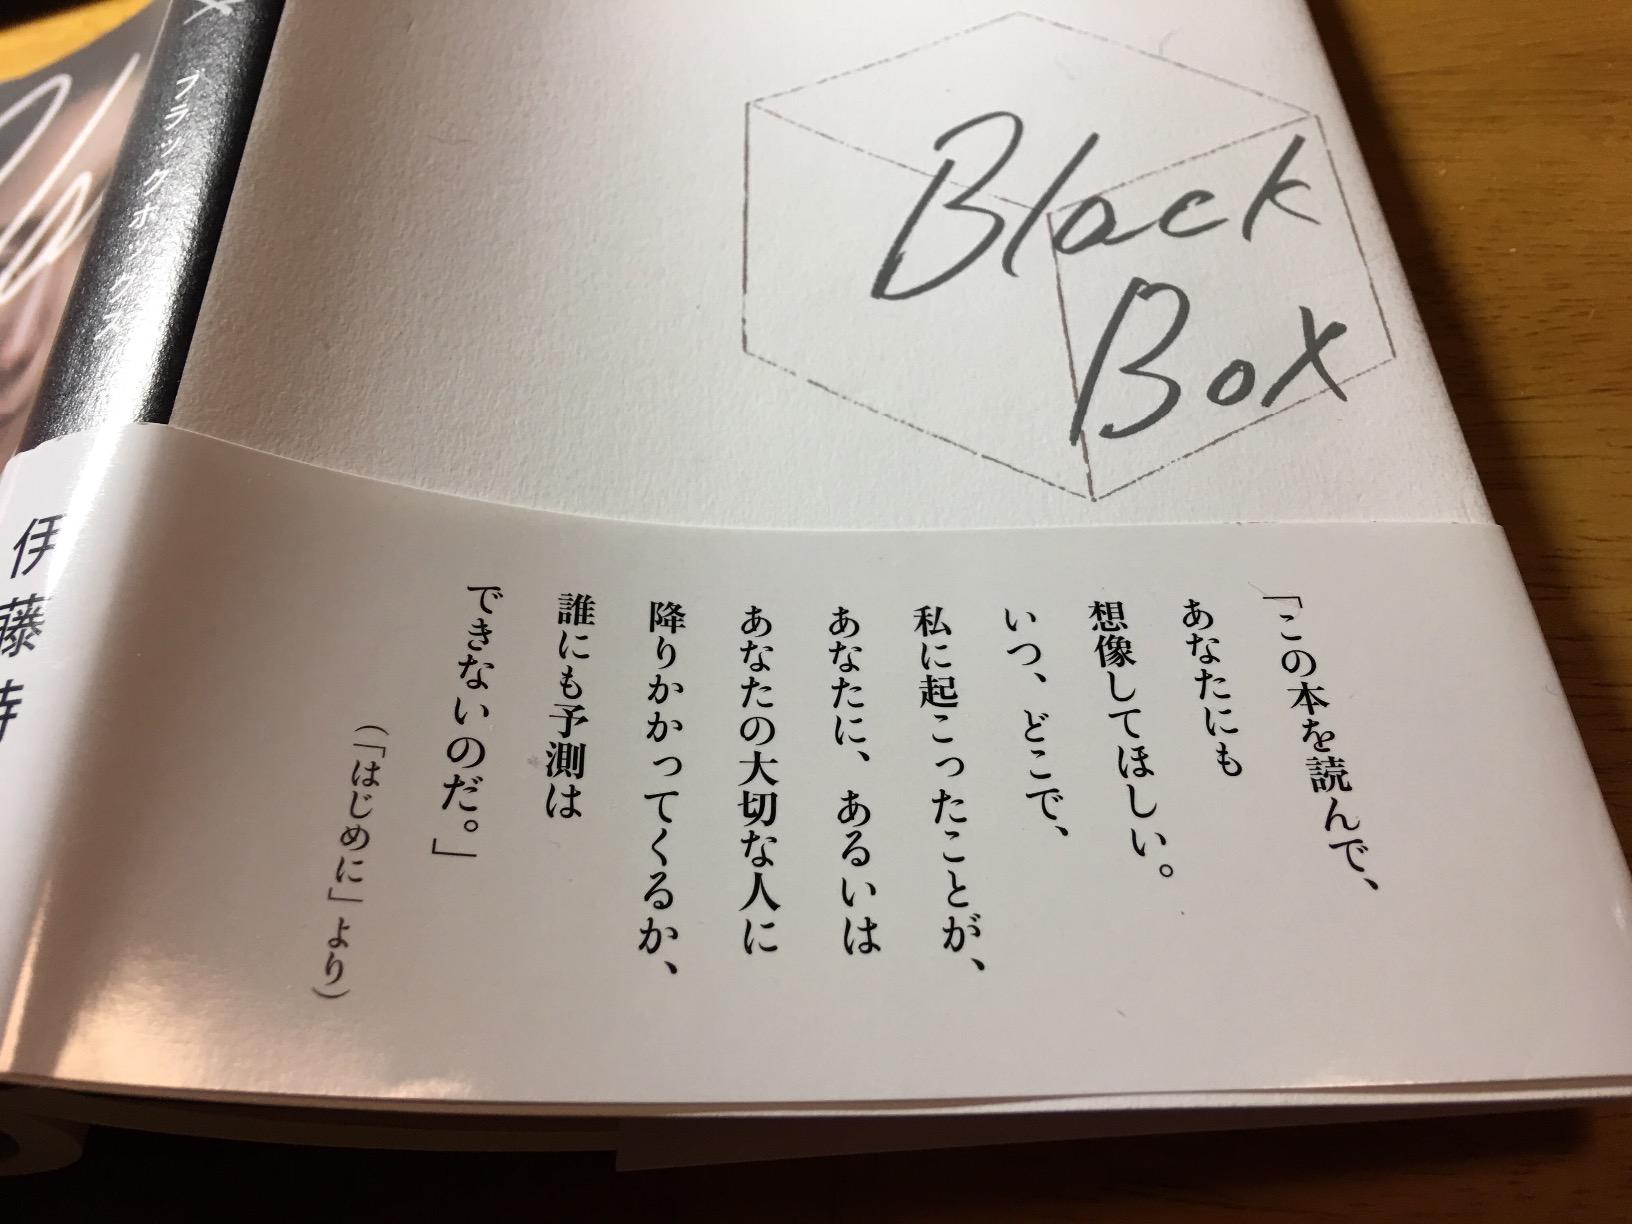 Black
Box
ブラックボックス
伊藤詩
「この本を読んで、
あなたにも
想像してほしい。
いつ、どこで、
私に起こったことが、
あなたに、あるいは
あなたの大切な人に
降りかかってくるか、
誰にも予測は
できないのだ。」
(「はじめに」より)